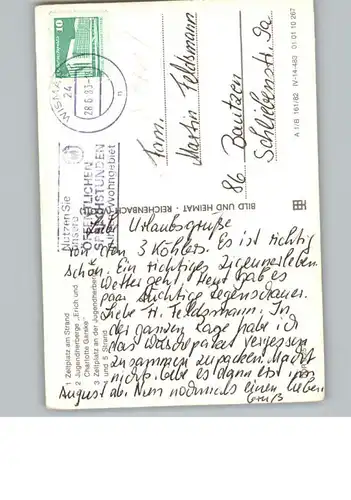 WISMAR
24
28.6.83
10
Nutzen Sie
unsere
ÖFFENTLICHEN
SPRECHSTUNDEN
Wohngebiet
Fam.
Martin Feldsmann
86 Bautzen
Schliebenstr. 9a
BILD UND HEIMAT · REICHENBACH
A 1/B 161/82 IV-14-483 01 01 10 267
1 Zeltplatz am Strand
2 Jugendherberge „Erich und
Charlotte Garske"
3 Zeltplatz an der Jugendherberge
4 und 5 Strand
Urlaubsgrüße
von den 3 Köhlers. Es ist richtig
schön. Ein richtiges Zigeunerleben.
Wetter geht, heut gab es
paar tüchtige Regenschauer.
Liebe H. Feldsmann. In
der ganzen Rage habe ich
das Wäschepaket vergessen
zusammen zupacken. Macht
nichts. Gebe es dann erst im
August ab. Nun nochmals einen lieben
Gruß